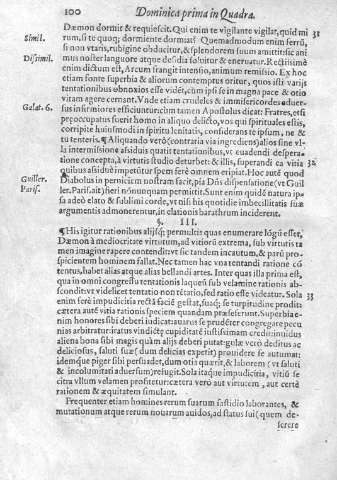 100 Dominica prima in Quadra.
Dæmon dormit & requiescit. Qui enim te vigilante vigilat, quid mi 31
Simil. rum, si te quoq; dormiente dormiat? Quemadmodum enim ferrũ,
si non vtaris, rubigine obducitur, & splendorem suum amittit: sic ani
Dissimil. mus noster languore atque desidia soluitur & eneruatur. Rectissimè
enim dictum est, Arcum frangit intensio, animum remissio. Ex hoc
etiam fonte superbia & aliorum contemptus oritur, quos isti varijs
tentationibus obnoxios esse vidẽt, cùm ipsi se in magna pace & otio
vitam agere cernant. Vnde etiam crudeles & immisericordes aduer-
Galat. 6. sus infirmiores efficiuntur: cùm tamen Apostolus dicat: Fratres, etsi
præoccupatus fuerit homo in aliquo delicto, vos qui spirituales estis,
corripite huiusmodi in spiritu lenitatis, considerans te ipsum, ne &
tu tenteris. ¶ Aliquando verò (contraria via ingrediens) alios sine vl-
la intermissione assiduis quatit tentationibus, vt euadendi despera-
tione concepta, à virtutis studio deturbet: & illis, superandi ea vitia 32
quibus assiduè impetũtur spem ferè omnem eripiat. Hoc autẽ quod
Guiller. Diabolus in perniciem nostram facit, pia Dñi dispensatione (vt Guil
Paris. ler. Paris. ait) fieri nonnunquam permittit. Sunt enim quidã natura ip-
sa adeò elato & sublimi corde, vt nisi his quotidie imbecillitatis suæ
argumentis admonerentur, in elationis barathrum inciderent.
§. III.
¶ His igitur rationibus alijsq; permultis quas enumerare lõgũ esset,
Dæmon à mediocritate virtutum, ad vitiorũ extrema, sub virtutis ta
men imagine rapere contendit: vt sic tandem incautum, & parũ pro-
spicientem hominem fallat. Nec tamen hac vna tentandi ratione cõ
tentus, habet alias atque alias bellandi artes. Inter quas illa prima est,
qua in omni congressu tentationis laqueũ sub velamine rationis abs-
condit: vt videlicet tentatio non tẽtatio, sed ratio esse videatur. Sola 33
enim ferè impudicitia rectà facië gestat, suaq; se turpitudine prodit:
cætera autẽ vitia rationis speciem quandam præseferunt. Superbia e-
nim honores sibi deberi iudicat: auarus se prudẽter congregare pecu
nias arbitratur: iratus vindictę cupiditatẽ iustissimam credit: inuidus
aliena bona sibi magis quàm alijs deberi putat: gulæ verò deditus ac
deliciosus, saluti suæ (dum delicias expetit) prouidere se autumat:
idemque piger sibi persuadet, dum otia quærit, & laborem (vt saluti
& incolumitati aduersum) refugit. Sola itaque impudicitia, vitiũ se
citra vllum velamen profitetur: cætera verò aut virtutem, aut certè
rationem & æquitatem simulant.
Frequenter etiam homines rerum suarum fastidio laborantes, &
mutationum atque rerum nouarum auidos, ad status sui (quem de-
serere